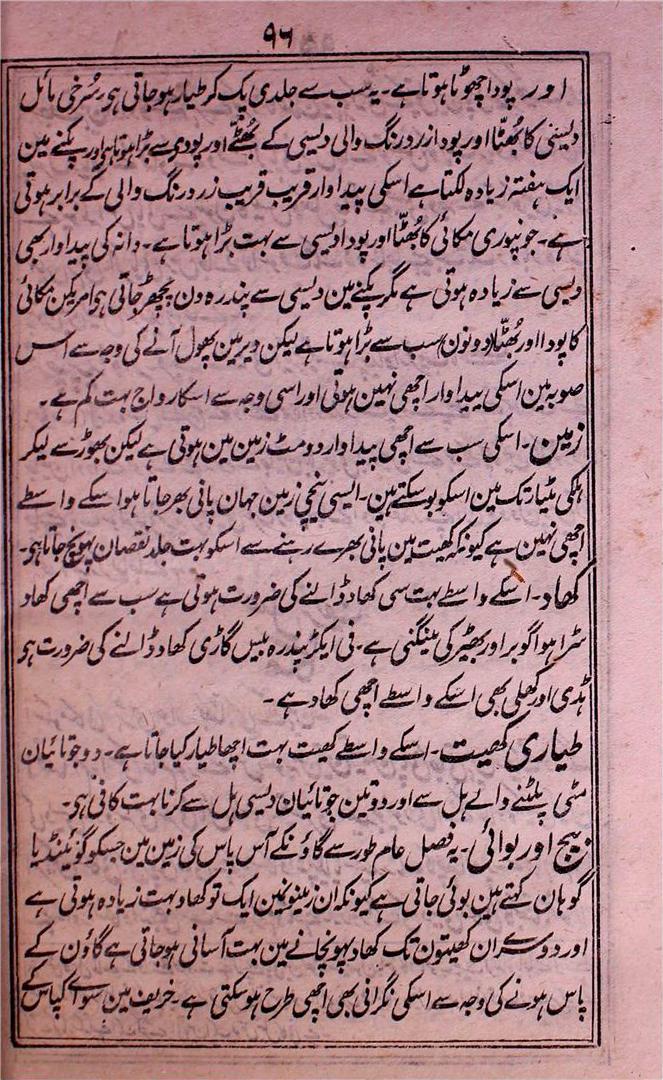 ۹۶
اور پودا چھوٹا ہوتا ہے۔ یہ سب سے جلدی پک کر طیار ہو جاتی ہی۔ سُرخی مائل
دیسی کا بھُٹّا اور پودا زرد رنگ والی دیسی کے بھُٹّے اور پودی سے بڑا ہوتا ہی اور پکنے مین
ایک ہفتہ زیادہ لگتا ہے اسکی پیداوار قریب قریب زرد رنگ والی کے برابر ہوتی
ہے۔ جونپوری مکائی کا بھُٹّا اور پودا دیسی سے بہت بڑا ہوتا ہے۔ دانہ کی پیداوار بھی
دیسی سے زیادہ ہوتی ہے مگر پکنے مین دیسی سے پندرہ دن پچھڑ جاتی ہی امریکین مکائی
کا پودا اور بھُٹّا (دونون) سب سے بڑا ہوتا ہے لیکن دیر مین پھول آنے کی وجہ سے اس
صوبہ مین اسکی پیداوار اچھی نہین ہوتی اور اسی وجہ سے اسکا رواج بہت کم ہے۔
زمین۔ اسکی سب سے اچھی پیداوار دومٹ زمین مین ہوتی ہے لیکن بھوڑ سے لیکر
ہلکی مٹیار تک مین اسکو بو سکتے ہین۔ ایسی نیچی زمین جہان پانی بھر جاتا ہو اسکے واسطے
اچھی نہین ہے کیونکہ کھیت مین پانی بھرے رہنے سے اسکو بہت جلد نقصان پہونچ جاتا ہی۔
کھاد۔ اسکے واسطے بہت سی کھاد ڈالنے کی ضرورت ہوتی ہے سب سے اچھی کھاد
سڑا ہوا گوبر اور بھیڑ کی مینگنی ہے۔ فی ایکڑ پندرہ بیس گاڑی کھاد ڈالنے کی ضرورت ہی
ہڈی اور کھلی بھی اسکے واسطے اچھی کھاد ہے۔
طیاری کھیت۔ اسکے واسطے کھیت بہت اچھا طیار کیا جاتا ہے۔ دو جوتائیان
مٹی پلٹنے والے ہل سے اور دو تین جوتائیان دیسی ہل سے کرنا بہت کافی ہی۔
بیج اور بوائی۔ یہ فصل عام طور سے گاؤنکے آس پاس کی زمین مین جسکو گوئینڈ یا
گوہان کہتے ہین بوئی جاتی ہے کیونکہ ان زمینونمین ایک تو کھاد بہت زیادہ ہوتی ہے
اور دوسرے ان کھیتون تک کھاد پہونچانے مین بہت آسانی ہو جاتی ہے گاؤن کے
پاس ہونے کی وجہ سے اسکی نگرانی بھی اچھی طرح ہو سکتی ہے۔ خریف مین سوائے کپاس کے